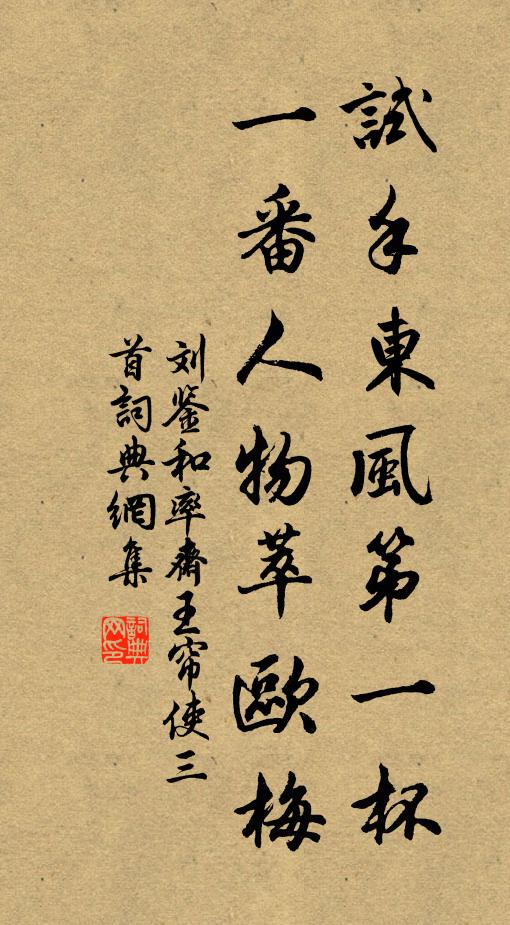 試手東風第一杯
一番人物萃歐梅
刘鉴和率齋王帘使三
首詞典網集
詞典
网印